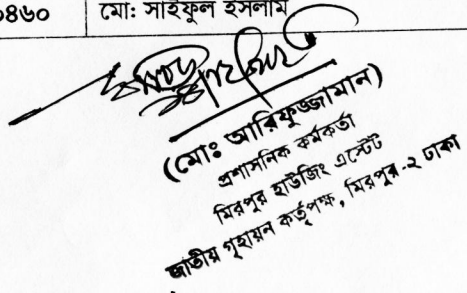 ০৪৬০ মো: সাইফুল ইসলাম
(মোঃ আরিফুজ্জামান)
প্রশাসনিক কর্মকর্তা
মিরপুর হাউজিং এস্টেট
জাতীয় গৃহায়ন কর্তৃপক্ষ, মিরপুর-২ ঢাকা